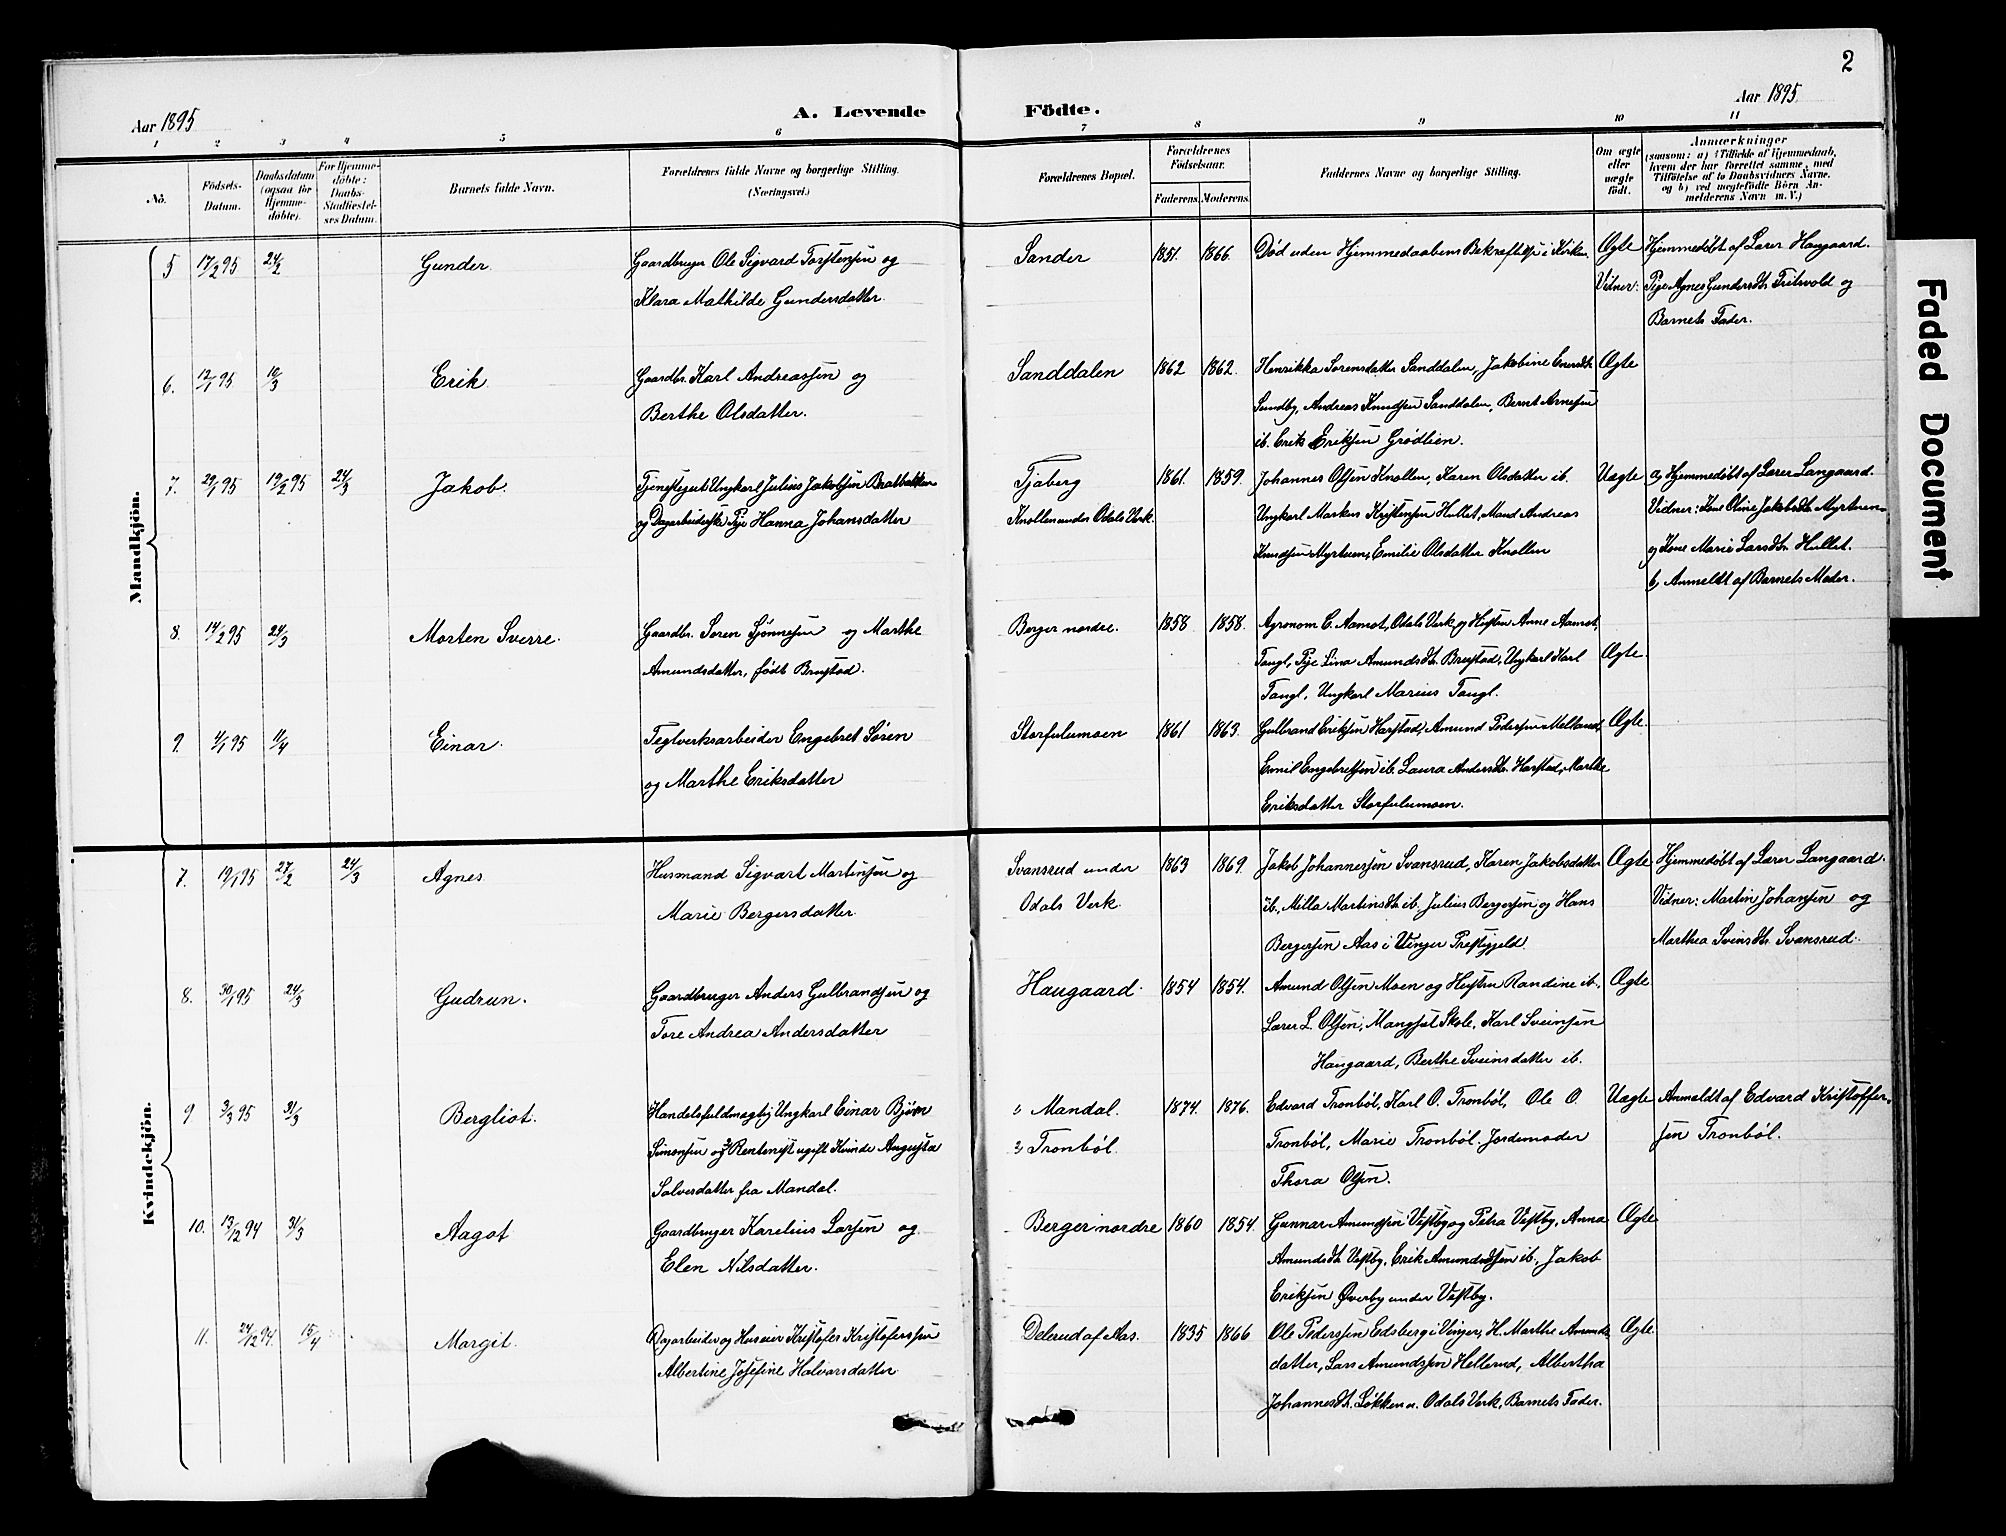 2
Aar 1895
A. Levende Födte.
Aar 1895
1 2 3 4 5 6 7 8 9 10 11
No.
Födsels-Datum.
Daabsdatum (ogsaa for Hjemmedöbte).
For Hjemmedöbte: Daabs-Stadfæstelses Datum.
Barnets fulde Navn.
Forældrenes fulde Navne og borgerlige Stilling. (Næringsvei.)
Forældrenes Bopæl.
Forældrenes Födselsaar.
Faderens. Moderens.
Faddernes Navne og borgerlige Stilling.
Om ægte eller uægte födt.
Anmærkninger
(saasom: a) i Tilfælde af Hjemmedaab, hvem der har forrettet samme, med Tilföielse af to Daabsvidners Navne, og b) ved uægtefödte Börn Anmelderens Navn m. V.)
Mandkjön.
5 17/2 95 24/2 Gunder. Gaardbruger Ole Sigvard Torstensen og Sander 1851. 1866. Död uden Hjemmedaabens Bekræftelse i Kirken. Ægte Hjemmedöbt af Lærer Haugaard.
Klara Mathilde Gundersdatter. Vidner: Pige Agnes Gundersdt. Fritsvold og
Barnets Fader.
6. 12/1 95 10/3 Erik Gaardbr. Karl Andreassen og Sanddalen 1862 1862. Henrikka Sorensdatter Sanddalen, Jakobine Enersdt. Ægte
Berthe Olsdatter. Sundby, Andreas Knudsen Sanddalen, Bernt Arnesen
ib. Erik Eriksen Grødlien.
7. 29/1 95 19/2 95 24/3 Jakob. Tjenestegut Ungkarl Julius Jakobsen Bratbakken Tjaberg 1861. 1859. Johannes Olsen Knollen, Karen Olsdatter ib. Uægte a, Hjemmedöbt af Lærer Langaard.
og Dagarbeiderske Pige Hanna Johansdatter Knollen under Odals Verk. Ungkarl Markus Kristensen Hullet, Mand Andreas Vidner: Kone Oline Jakobsdt. Myrtuen
Knudsen Myrtuen, Emilie Olsdatter Knollen og Kone Marie Larsdt. Hullet.
b, Anmeldt af Barnets Moder.
8. 14/2 95 24/3 Morten Sverre. Gaardbr. Soren Sjönnesen og Marthe Berger nordre. 1858 1858. Agronom C. Aamot, Odals Verk og Hustru Anne Aamot,
Amundsdatter, født Brustad. Tangl, Pige Lina Amundsdt. Brustad, Ungkarl Karl Ægte.
Tangl, Ungkarl Marius Tangl.
9. 4/1 95 11/4 Einar. Teglverksarbeider Engebret Sören Storfulumoen 1861 1863. Gulbrand Eriksen Harstad, Amund Pedersen Melland, Ægte.
og Marthe Eriksdatter Emil Engebretsen ib. Laura Andersdt. Harstad, Marthe
Eriksdatter Storfulumoen.
Kvindekjön.
7. 19/1 95 27/2 24/3 Agnes Husmand Sigvart Martinsen og Svansrud under 1863 1869. Jakob Johannessen Svansrud, Karen Jakobsdatter Ægte Hjemmedöbt af Lærer Langaard.
Marie Bergersdatter. Odals Verk. ib., Milla Martinsdt. ib. Julius Bergersen og Hans Vidner: Martin Johansen og
Bergersen Aas i Vinger Prestegjeld. Marthea Svinsdt. Svansrud.
8. 30/1 95 24/3 Gudrun. Gaardbruger Anders Gulbrandsen og Haugaard. 1854 1854. Amund Olsen Moen og Hustru Randine ib., Ægte
Tore Andrea Andersdatter Lærer L. Olsen, Mangset Skole, Karl Sveinsen
Haugaard, Berthe Sveinsdatter ib.
9 3/3 95 31/3 Bergliot. Handelsfuldmægtig Ungkarl Einar Bjørn 1) Mandal. 1874. 1876. Edvard Tronböl, Karl O. Tronböl, Ole O. Uægte Anmeldt af Edvard Kristoffer-
Simonsen og Rentenist ugift Kvinde Augusta 2) Tronböl. Tronböl, Marie Tronböl. Jordemoder sen Tronböl.
Salvesdatter fra Mandal. Thora Olsen.
10. 13/12 94 31/3 Aagot Gaardbruger Karelius Larsen og Berger nordre 1860 1854. Gunnar Amundsen Vestby og Petra Vestby, Anna Ægte
Elen Nilsdatter. Amundsdt. Vestby, Erik Amundsen ib., Jakob
Eriksen Øverby under Vestby.
11. 24/12 94 15/4 Margit. Dagarbeider og Huseier Kristofer Kristofersen Delerud af Aas. 1835 1866 Ole Pedersen Edsberg i Vinger, H. Marthe Amunds- Ægte.
Albertine Josefine Halvorsdatter datter, Lars Amundsen Hellerud, Albertha
Johannesdt. Løkken u. Odals Verk, Barnets Fader.
Faded Document